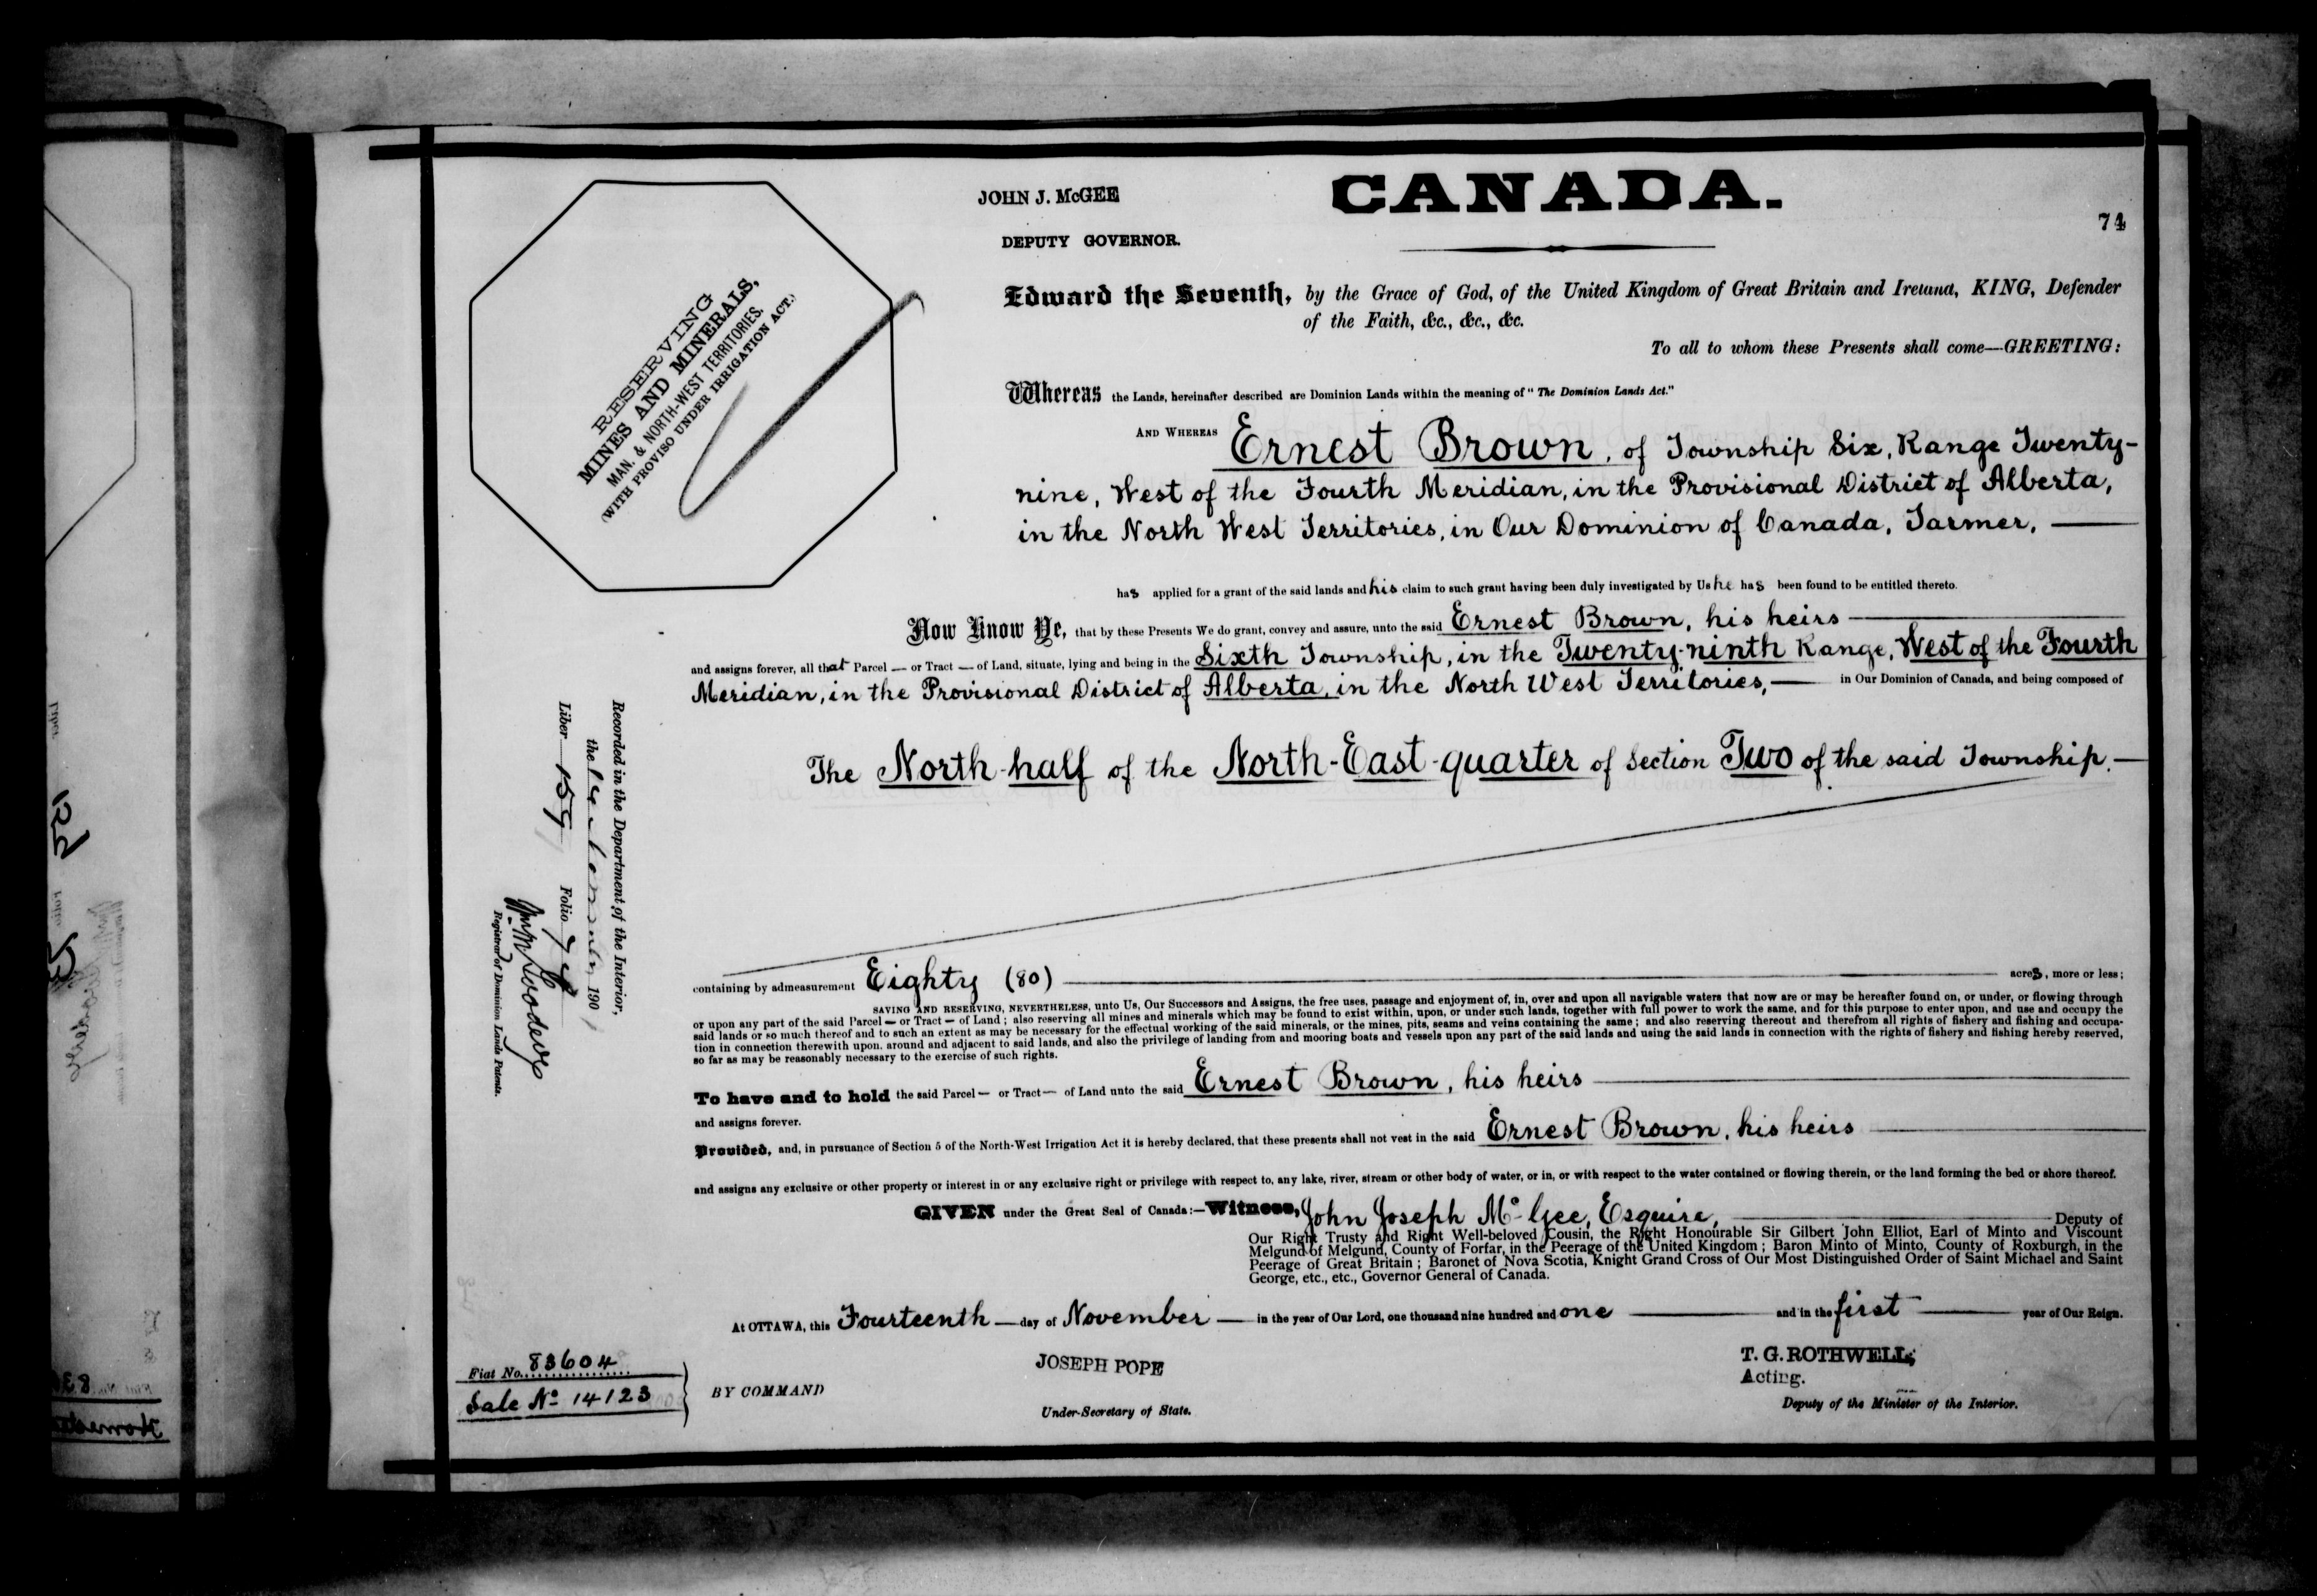 JOHN J. McGEE
DEPUTY GOVERNOR.
CANADA.
74
RESERVING
MINES AND MINERALS,
MAN. & NORTH-WEST TERRITORIES.
(WITH PROVISO UNDER IRRIGATION ACT.)
Edward the Seventh, by the Grace of God, of the United Kingdom of Great Britain and Ireland, KING, Defender
of the Faith, &c., &c., &c.
To all to whom these Presents shall come—GREETING:
Whereas the Lands, hereinafter described are Dominion Lands within the meaning of "The Dominion Lands Act."
AND WHEREAS Ernest Brown, of Township Six, Range Twenty-
nine, West of the Fourth Meridian, in the Provisional District of Alberta,
in the North West Territories, in Our Dominion of Canada, Farmer,
has applied for a grant of the said lands and his claim to such grant having been duly investigated by Us he has been found to be entitled thereto.
Now Know Ye, that by these Presents We do grant, convey and assure, unto the said Ernest Brown, his heirs
and assigns forever, all that Parcel — or Tract — of Land, situate, lying and being in the Sixth Township, in the Twenty-ninth Range, West of the Fourth
Meridian, in the Provisional District of Alberta, in the North West Territories, — in Our Dominion of Canada, and being composed of
The North-half of the North-East-quarter of Section Two of the said Township.—
containing by admeasurement Eighty (80) acres, more or less;
SAVING AND RESERVING, NEVERTHELESS, unto Us, Our Successors and Assigns, the free uses, passage and enjoyment of, in, over and upon all navigable waters that now are or may be hereafter found on, or under, or flowing through
or upon any part of the said Parcel — or Tract — of Land; also reserving all mines and minerals which may be found to exist within, upon, or under such lands, together with full power to work the same, and for this purpose to enter upon, and use and occupy the
said lands or so much thereof and to such an extent as may be necessary for the effectual working of the said minerals, or the mines, pits, seams and veins containing the same; and also reserving thereout and therefrom all rights of fishery and fishing and occupa-
tion in connection therewith upon, around and adjacent to said lands, and also the privilege of landing from and mooring boats and vessels upon any part of the said lands and using the said lands in connection with the rights of fishery and fishing hereby reserved,
so far as may be reasonably necessary to the exercise of such rights.
To have and to hold the said Parcel — or Tract — of Land unto the said Ernest Brown, his heirs
and assigns forever.
Provided, and, in pursuance of Section 5 of the North-West Irrigation Act it is hereby declared, that these presents shall not vest in the said Ernest Brown, his heirs
and assigns any exclusive or other property or interest in or any exclusive right or privilege with respect to, any lake, river, stream or other body of water, or in, or with respect to the water contained or flowing therein, or the land forming the bed or shore thereof.
GIVEN under the Great Seal of Canada:—Witness, John Joseph McGee, Esquire, Deputy of
Our Right Trusty and Right Well-beloved Cousin, the Right Honourable Sir Gilbert John Elliot, Earl of Minto and Viscount
Melgund of Melgund, County of Forfar, in the Peerage of the United Kingdom; Baron Minto of Minto, County of Roxburgh, in the
Peerage of Great Britain; Baronet of Nova Scotia, Knight Grand Cross of Our Most Distinguished Order of Saint Michael and Saint
George, etc., etc., Governor General of Canada.
At OTTAWA, this Fourteenth — day of November — in the year of Our Lord, one thousand nine hundred and one — and in the first — year of Our Reign.
Recorded in the Department of the Interior,
the 190
Liber 159 Folio 74
Registrar of Dominion Lands Patents.
Fiat No. 83604
Sale No 14123
BY COMMAND
JOSEPH POPE
Under-Secretary of State.
T. G. ROTHWELL,
Acting.
Deputy of the Minister of the Interior.